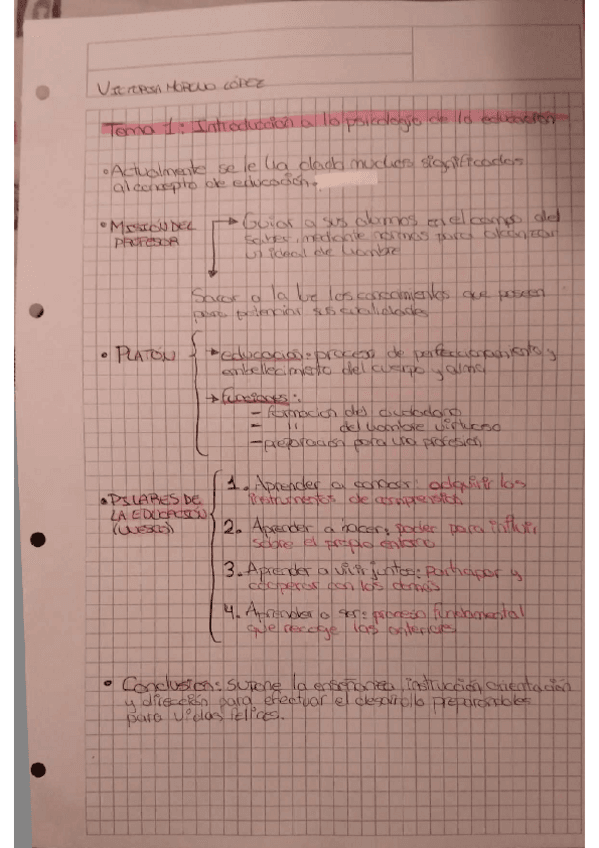 MORENO LÓPEZ
Tema 1: Introducción a la psicología de la educación
• Actualmente se le ha dado muchos significados
al concepto de educación.
• MISIÓN DEL
PROFESOR
→ Guiar a sus alumnos en el campo del
saber, mediante normas para alcanzar
un ideal de hombre
Sacar a la luz los conocimientos que poseen
para potenciar sus cualidades
• PLATÓN
→ educación: proceso de perfeccionamiento y
embellecimiento del cuerpo y alma
→ funciones:
- formación del ciudadano
- " del hombre virtuoso
- preparación para una profesión
• PILARES DE
LA EDUCACIÓN
(UNESCO)
1. Aprender a conocer: adquirir los
instrumentos de comprensión
2. Aprender a hacer: poder para influir
sobre el propio entorno
3. Aprender a vivir juntos: participar y
cooperar con los demás
4. Aprender a ser: proceso fundamental
que recoge las anteriores
• Conclusión: supone la enseñanza, instrucción, orientación
y dirección para efectuar el desarrollo
para vidas felices.